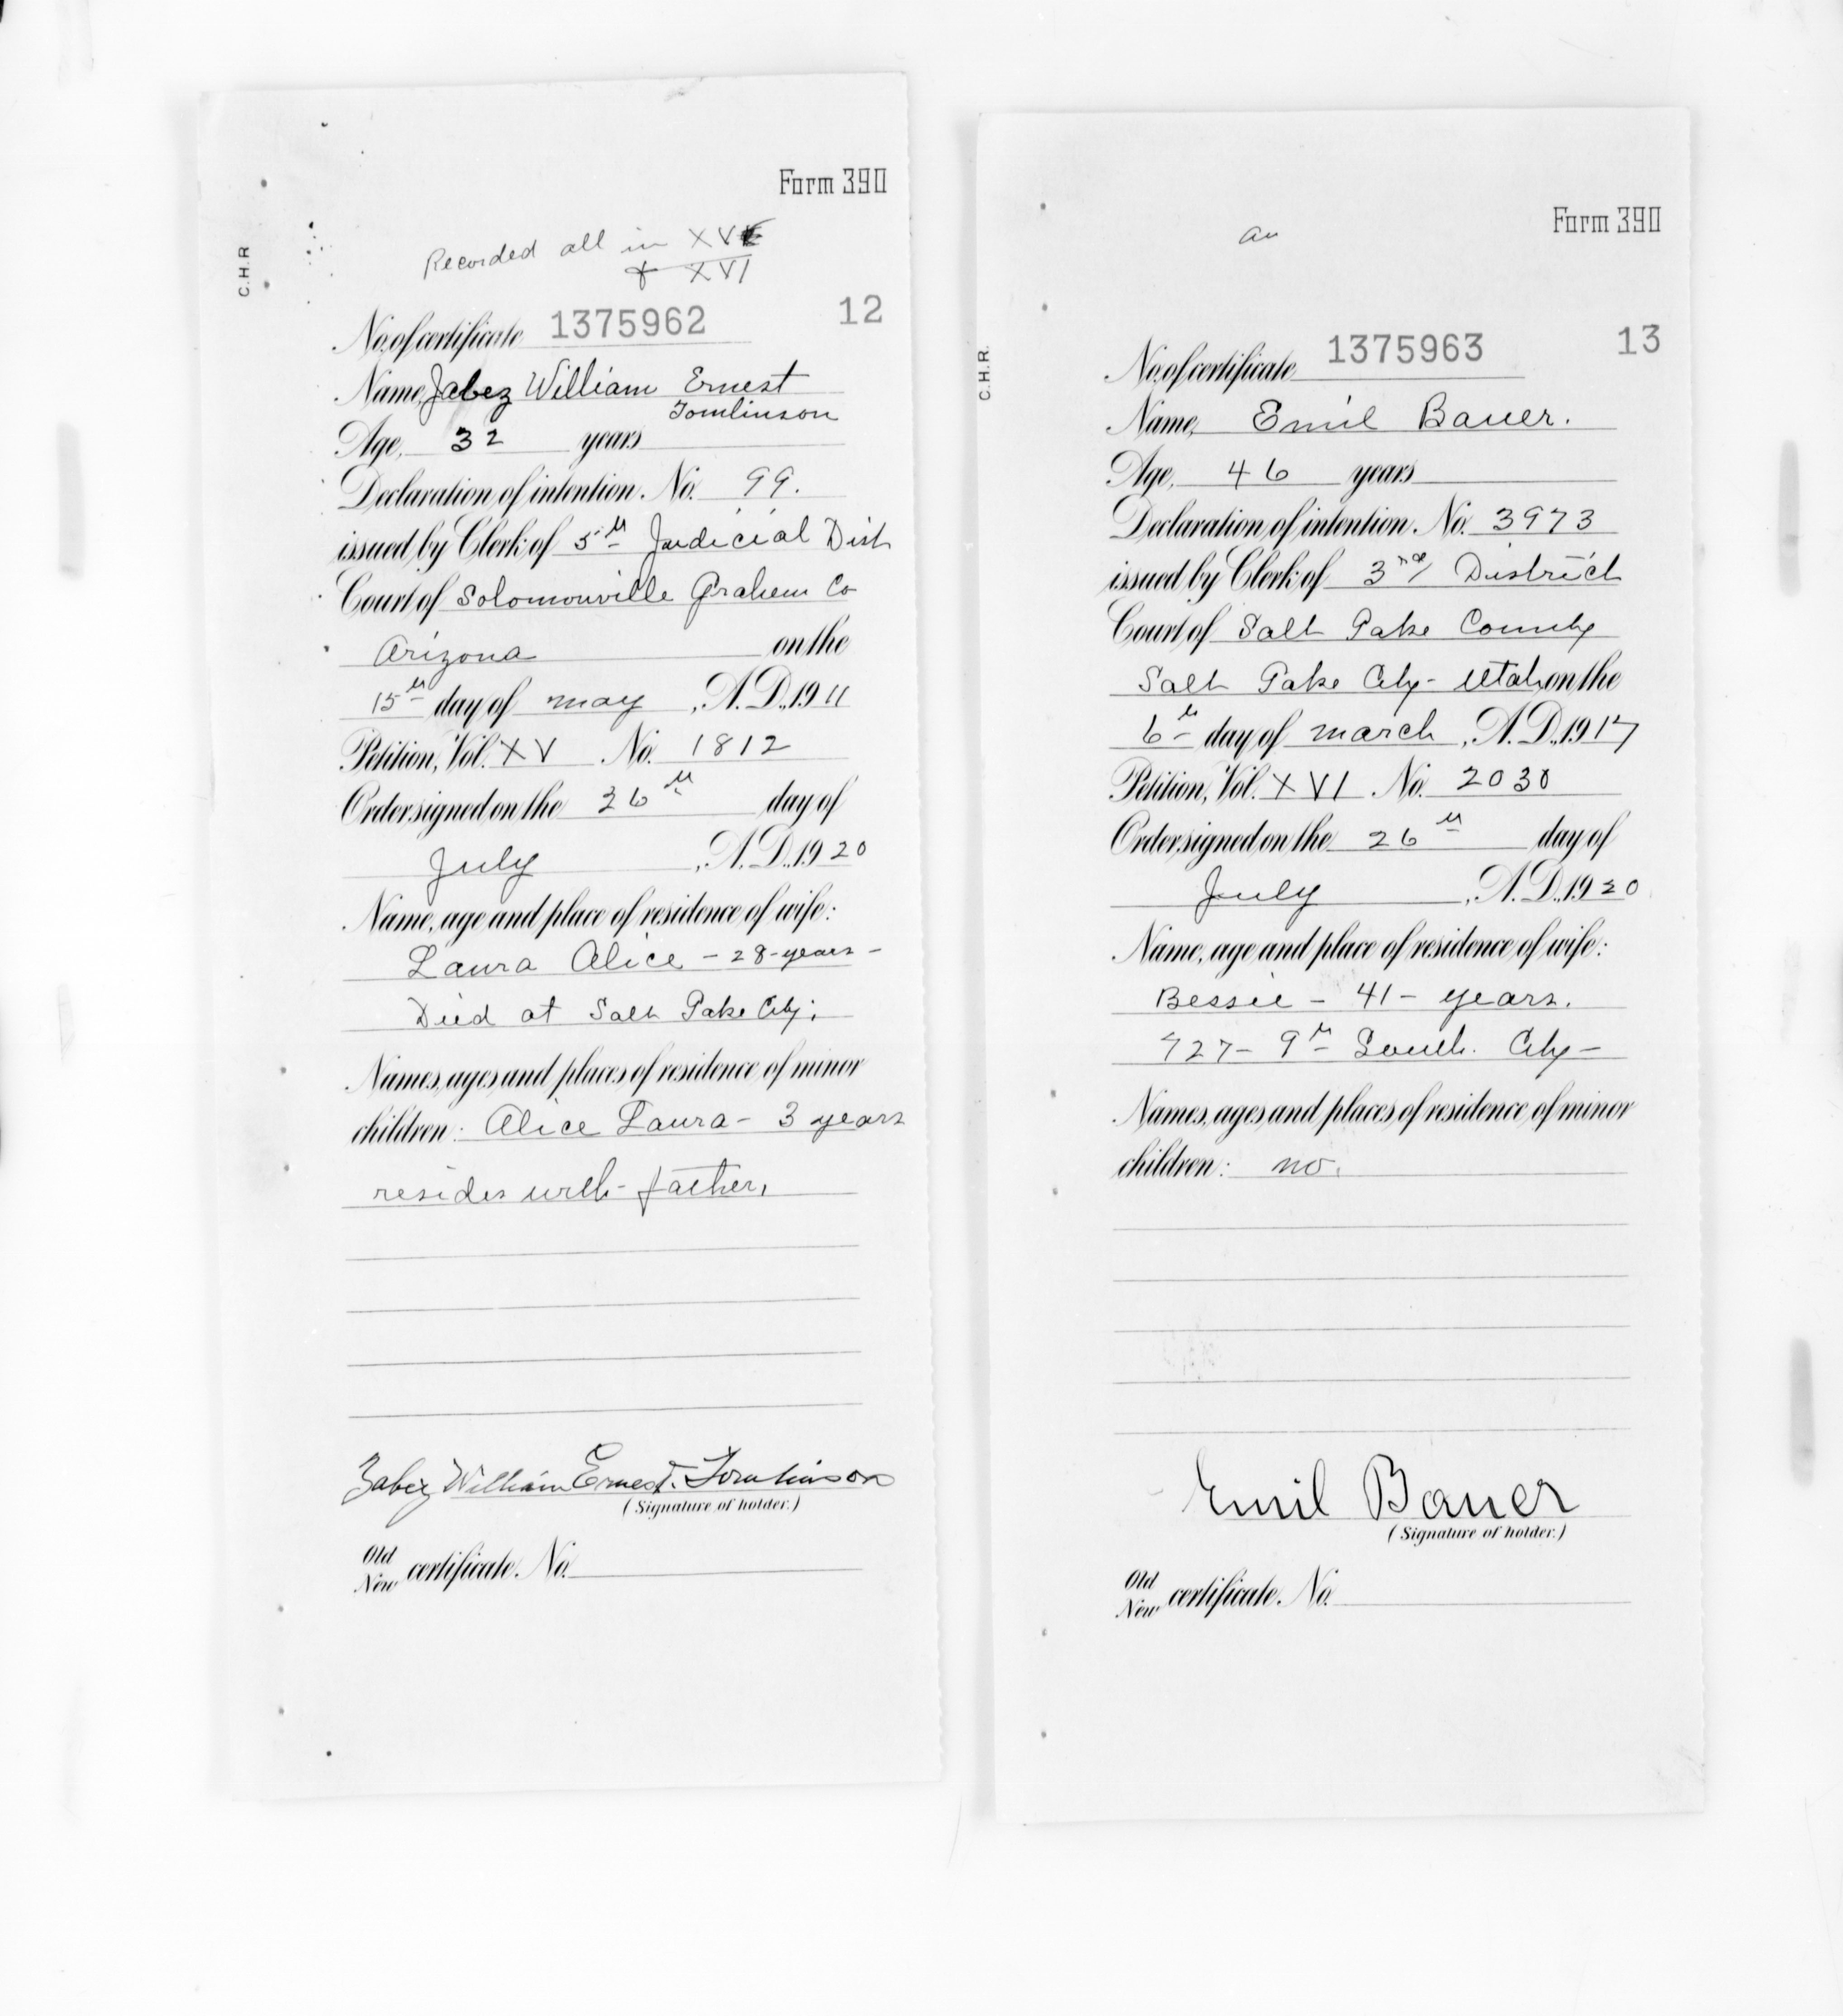 Form 390
Recorded all in XV
& XVI
C.H.R
No. of certificate 1375962 12
Name, Jabez William Ernest
Tomlinson
Age, 32 years
Declaration of intention. No. 99.
issued by Clerk of 5th Judicial Dist
Court of Solomonville Graham Co
Arizona on the
15th day of May, A.D., 1911
Petition, Vol. XV No. 1812
Order signed on the 26th day of
July, A.D., 1920
Name, age and place of residence of wife:
Laura Alice - 28 - years -
Died at Salt Lake City;
Names, ages and places of residence of minor
children: Alice Laura - 3 years
resides with - father.
Jabez William Ernest. Tomlinson
(Signature of holder.)
Old
New certificate. No.
Form 390
C.H.R.
No. of certificate 1375963 13
Name, Emil Bauer.
Age, 46 years
Declaration of intention. No. 3973
issued by Clerk of 3rd District
Court of Salt Lake County
Salt Lake City - Utah on the
6th day of March, A.D., 1917
Petition, Vol. XVI. No. 2030
Order signed on the 26th day of
July, A.D., 1920
Name, age and place of residence of wife:
Bessie - 41 - years.
727 - 9th South. City -
Names, ages and places of residence of minor
children: no.
Emil Bauer
(Signature of holder.)
Old
New certificate. No.